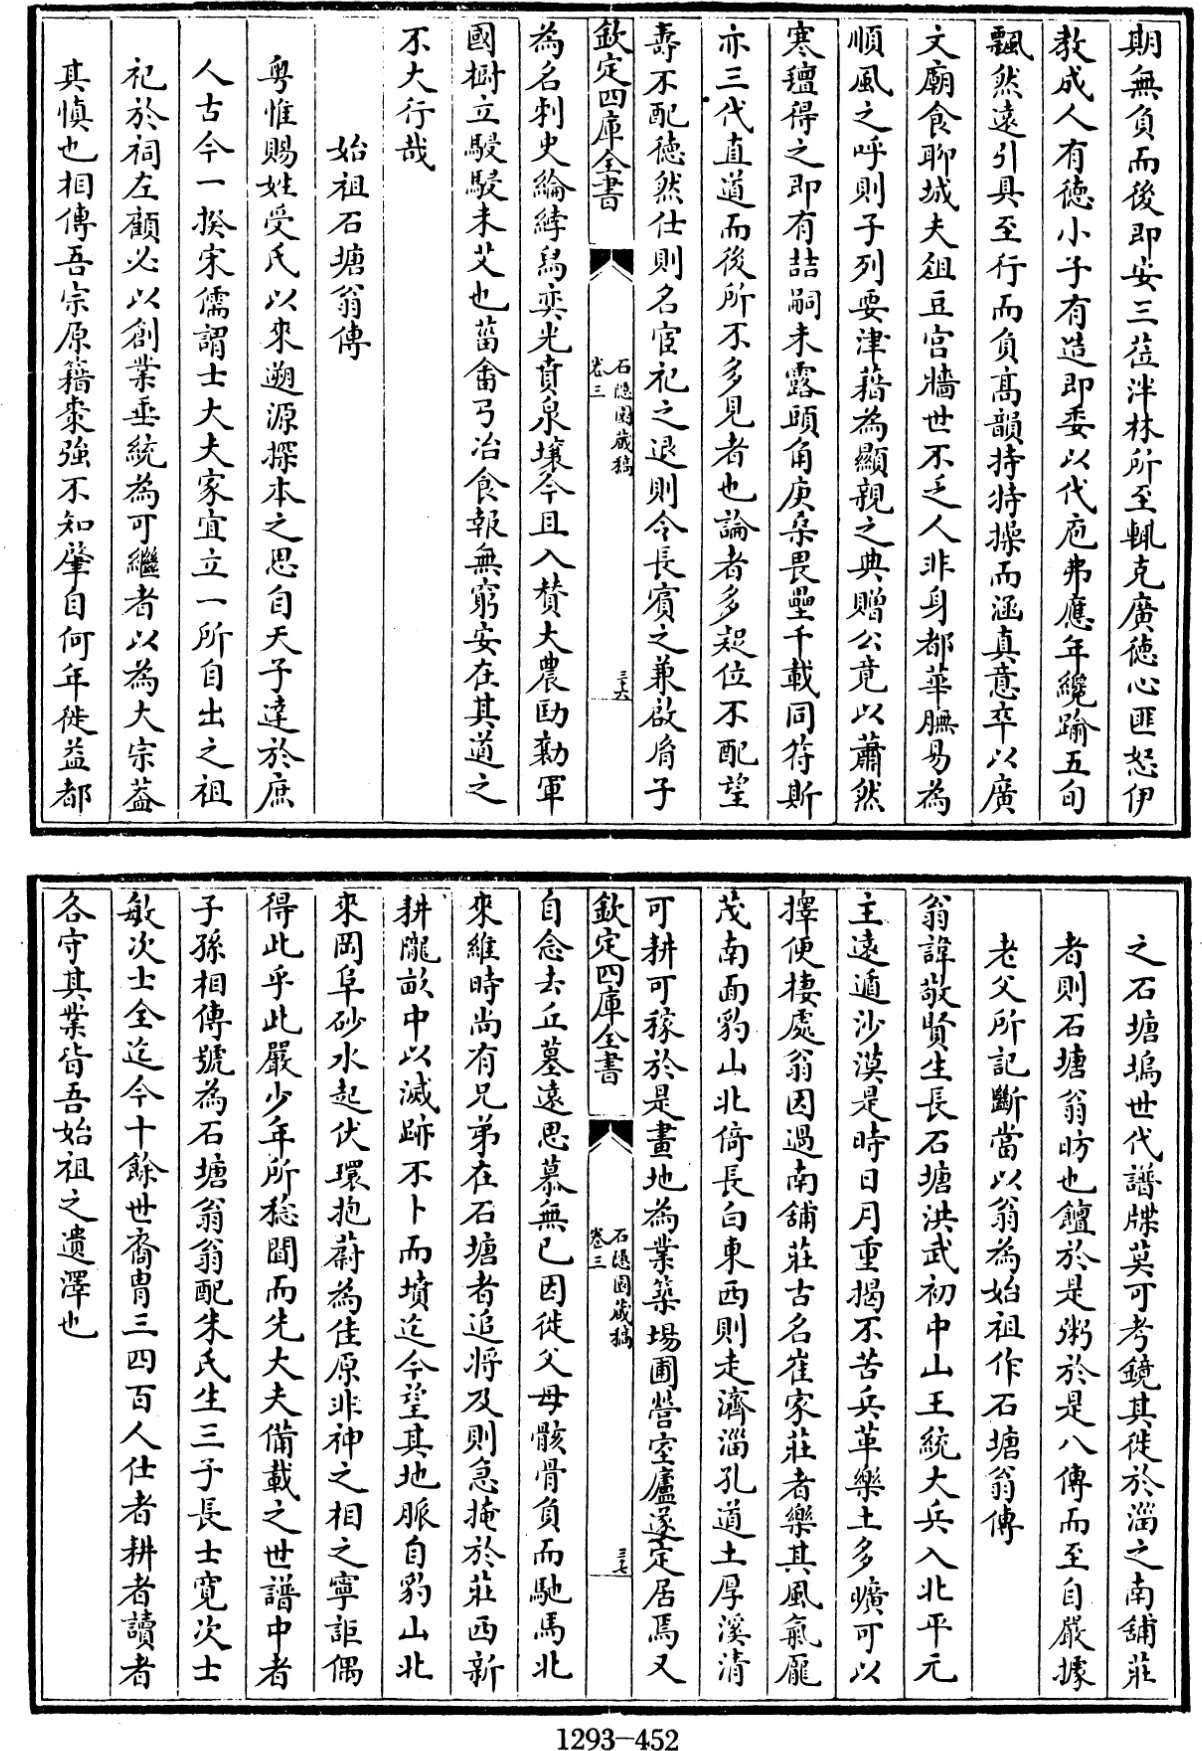 期無負而後即安三蒞泮林所至輒克廣徳心匪怒伊
教成人有徳小子有造即委以代庖弗應年纔踰五旬
飄然遠引具至行而負髙韻持特操而涵真意卒以廣
文廟食聊城夫俎豆宫牆世不乏人非身都華膴易為
順風之呼則子列要津藉為顯親之典贈公竟以蕭然
寒氊得之即有喆嗣未露頭角庚桑畏壘千載同符斯
亦三代直道而後所不多見者也論者多起位不配望
壽不配徳然仕則名宦祀之退則令長賓之兼啟脅子
欽定四庫全書
石隱園藏稿
卷三
三十六
為名刺史綸綍舄奕光賁泉壤今且入賛大農劻勷軍
國樹立駸駸未艾也菑畬弓冶食報無窮安在其道之
不大行哉
始祖石塘翁傳
粤惟賜姓受氏以來遡源探本之思自天子達於庶
人古今一揆宋儒謂士大夫家宜立一所自出之祖
祀於祠左顧必以創業垂統為可繼者以為大宗葢
其慎也相傳吾宗原籍棗强不知肇自何年徙益都
之石塘塢世代譜牒莫可考鏡其徙於淄之南舖莊
者則石塘翁昉也饘於是粥於是八傳而至自嚴據
老父所記斷當以翁為始祖作石塘翁傳
翁諱敬賢生長石塘洪武初中山王統大兵入北平元
主遠遁沙漠是時日月重揭不苦兵革樂土多曠可以
擇便棲處翁因過南舖莊古名崔家莊者樂其風氣龐
茂南面豹山北倚長白東西則走濟淄孔道土厚溪清
可耕可稼於是畫地為業築塲圃營室廬遂定居焉又
欽定四庫全書
石隱園藏稿
卷三
三十七
自念去丘墓遠思慕無已因徙父母骸骨負而馳馬北
來維時尚有兄弟在石塘者追將及則急掩於莊西新
耕隴畝中以滅跡不卜而墳迄今望其地脈自豹山北
來岡阜砂水起伏環抱蔚為佳原非神之相之寧詎偶
得此乎此嚴少年所稔聞而先大夫備載之世譜中者
子孫相傳號為石塘翁翁配朱氏生三子長士寛次士
敏次士全迄今十餘世裔胄三四百人仕者耕者讀者
各守其業皆吾始祖之遺澤也
1293-452